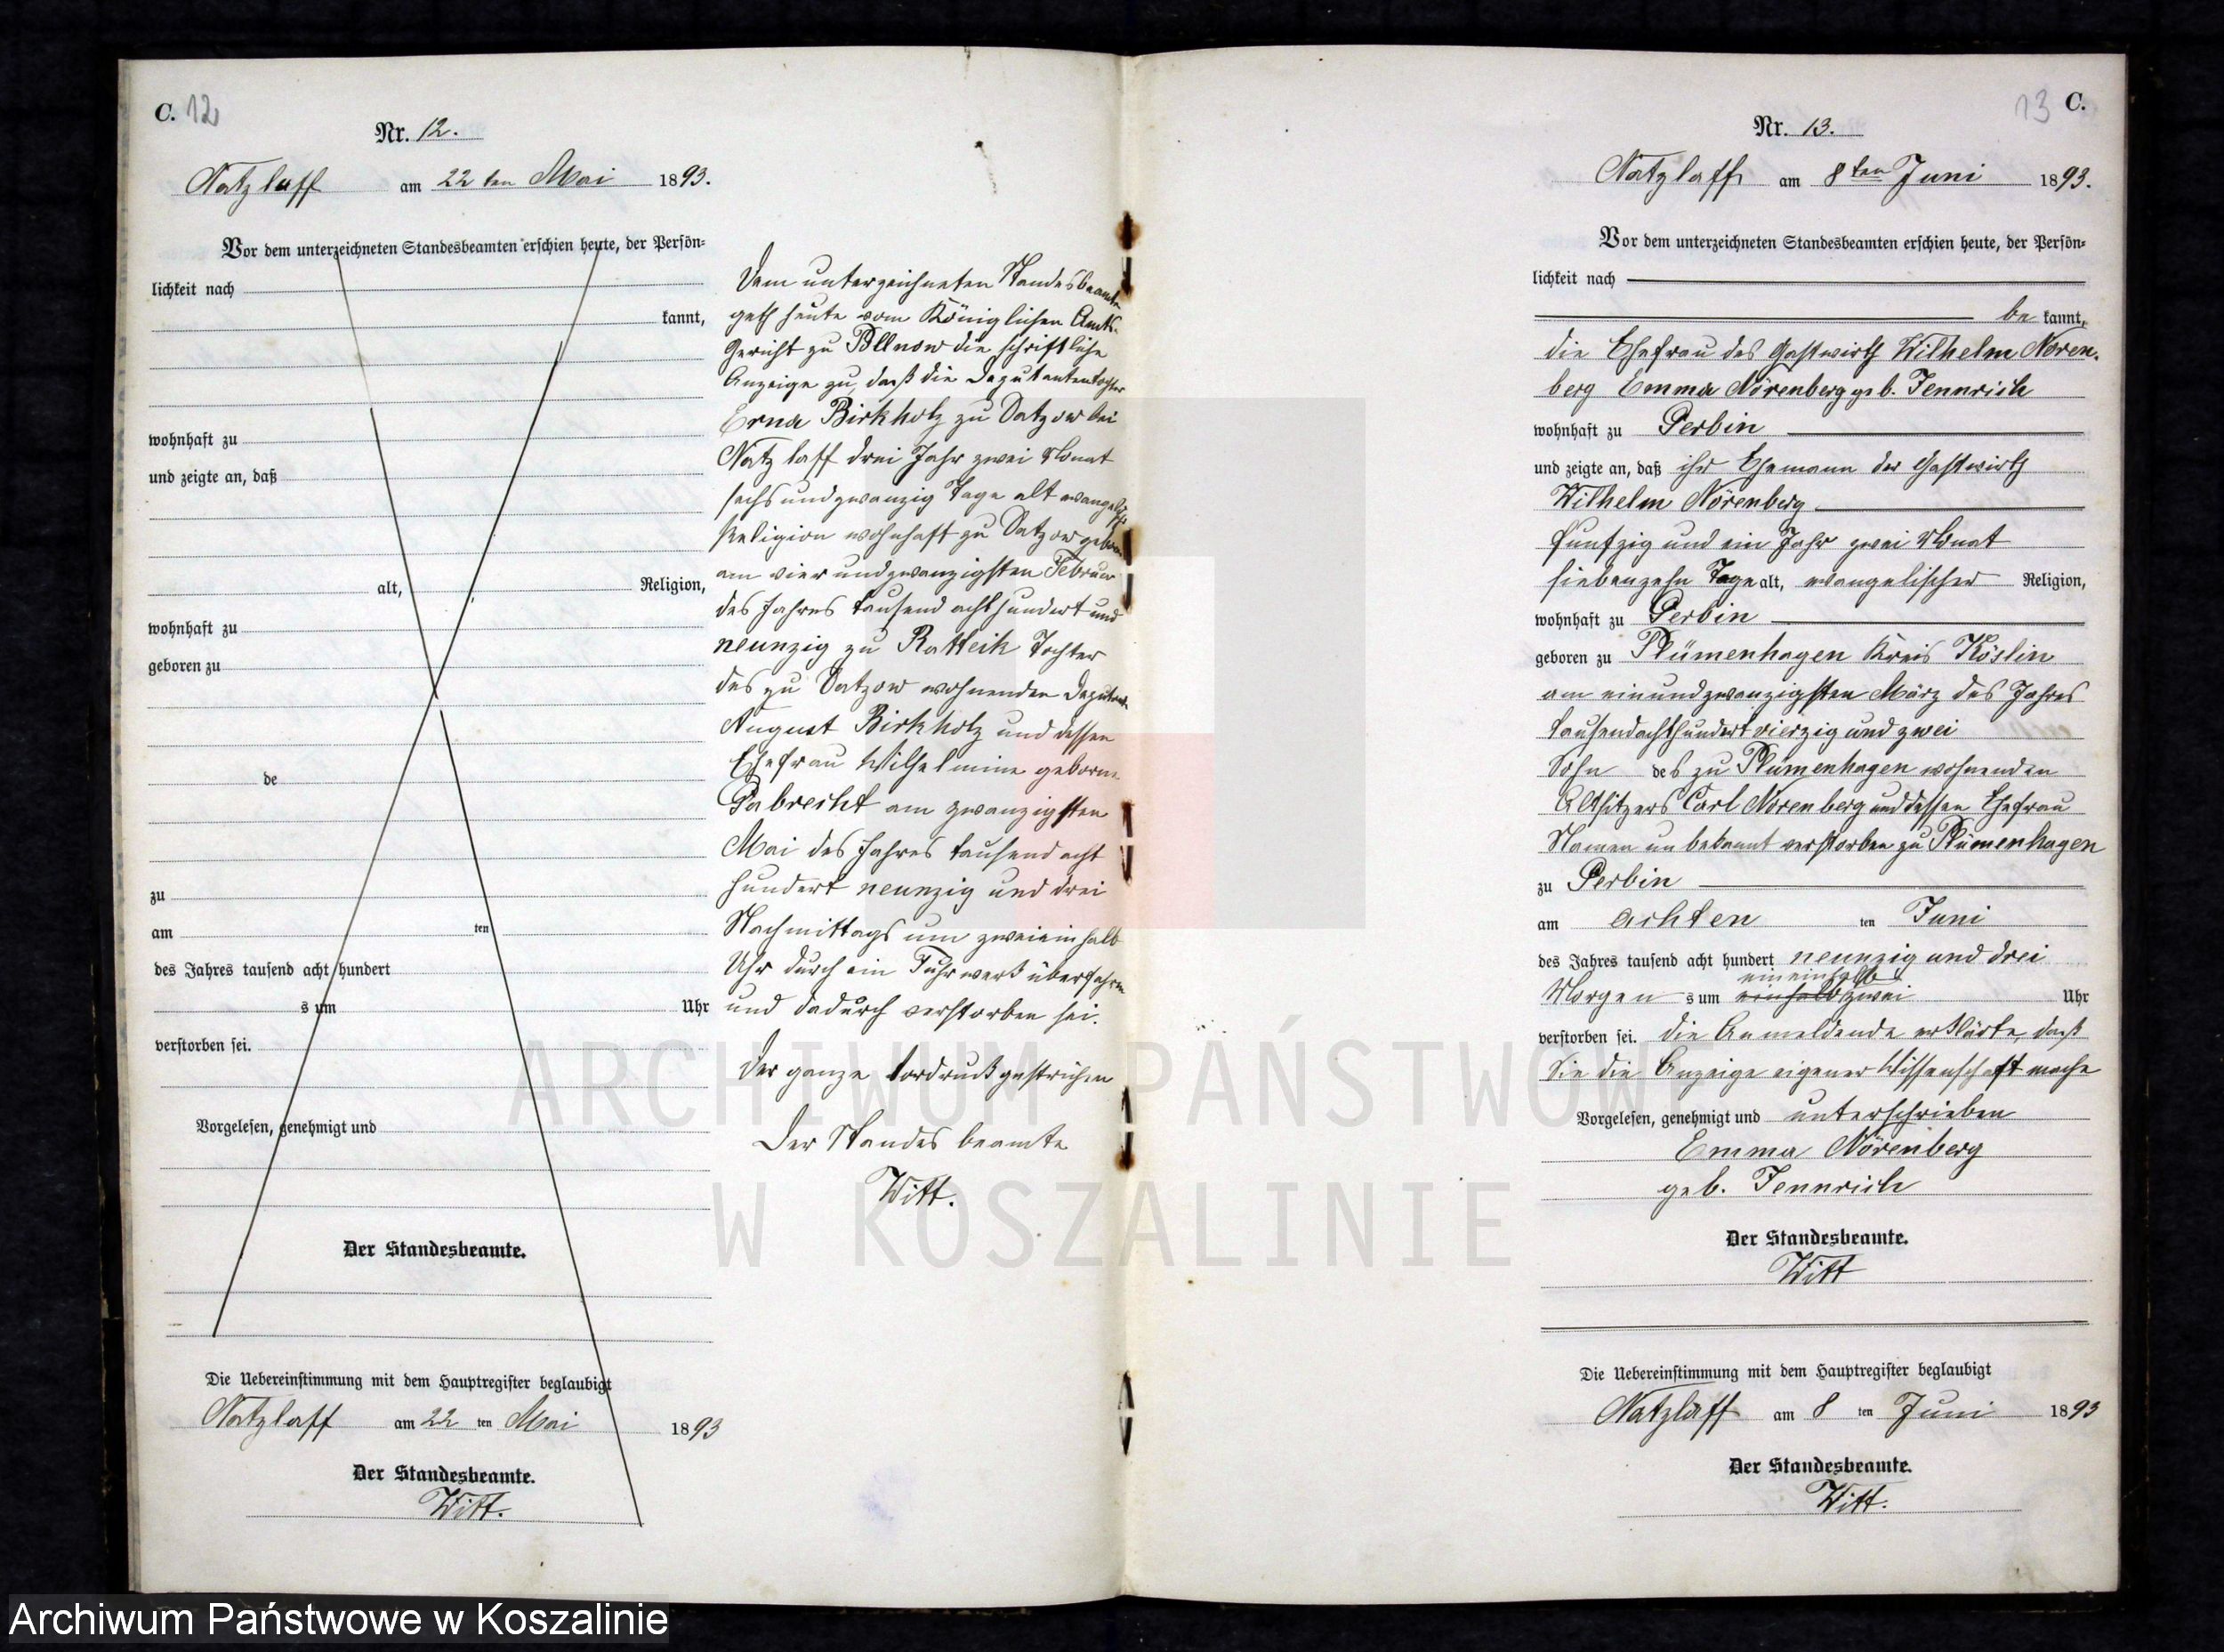 C. 12
Nr. 12.
Natzlaff am 22 ten Mai 1893.
Vor dem unterzeichneten Standesbeamten erschien heute, der Persön=
lichkeit nach
kannt,
wohnhaft zu
und zeigte an, daß
alt, Religion,
wohnhaft zu
geboren zu
de
zu
am ten
des Jahres tausend acht hundert
s um Uhr
verstorben sei.
Vorgelesen, genehmigt und
Der Standesbeamte.
Die Uebereinstimmung mit dem Hauptregister beglaubigt
Natzlaff am 22 ten Mai 1893
Der Standesbeamte.
Witt.
Dem unterzeichneten Standesbeamten
geht heute vom Königlichen Amts-
Gericht zu Pollnow die schriftliche
Anzeige zu, daß die Deputantentochter
Erna Birkholz zu Datzow bei
Natzlaff drei Jahr zwei Monat
sechs und zwanzig Tage alt evangelischer
Religion wohnhaft zu Datzow geboren
am vier und zwanzigsten Februar
des Jahres tausend acht hundert und
neunzig zu Ratteik Tochter
des zu Datzow wohnenden
August Birkholz und dessen
Ehefrau Wilhelmine geborne
Pabrecht am zwanzigsten
Mai des Jahres tausend acht
hundert neunzig und drei
Nachmittags um zweieinhalb
Uhr durch ein Fuhrwerk überfahren
und dadurch verstorben sei.
Der ganze Vordruck gestrichen
Der Standesbeamte
Witt.
13 C.
Nr. 13.
Natzlaff am 8 ten Juni 1893.
Vor dem unterzeichneten Standesbeamten erschien heute, der Persön=
lichkeit nach
be kannt,
die Ehefrau des Gastwirth Wilhelm Nören-
berg Emma Nörenberg geb. Jennrich
wohnhaft zu Perbin
und zeigte an, daß ihr Ehemann der Gastwirth
Wilhelm Nörenberg
funfzig und ein Jahr zwei Monat
siebenzehn Tage alt, evangelischer Religion,
wohnhaft zu Perbin
geboren zu Plümenhagen Kreis Köslin
am einundzwanzigsten März des Jahres
tausendachthundert vierzig und zwei
Sohn des zu Plümenhagen wohnenden
Altsitzers Carl Nörenberg und dessen Ehefrau
Namen unbekannt verstorben zu Plümenhagen
zu Perbin
am achten ten Juni
des Jahres tausend acht hundert neunzig und drei
eineinhalb
Morgen s um einhalb zwei Uhr
verstorben sei. die Anmeldende erklärte, daß
Sie die Anzeige eigener Wissenschaft mache
Vorgelesen, genehmigt und unterschrieben
Emma Nörenberg
geb. Jennrich
Der Standesbeamte.
Witt
Die Uebereinstimmung mit dem Hauptregister beglaubigt
Natzlaff am 8 ten Juni 1893
Der Standesbeamte.
Witt.
ARCHIWUM PAŃSTWOWE
W KOSZALINIE
Archiwum Państwowe w Koszalinie